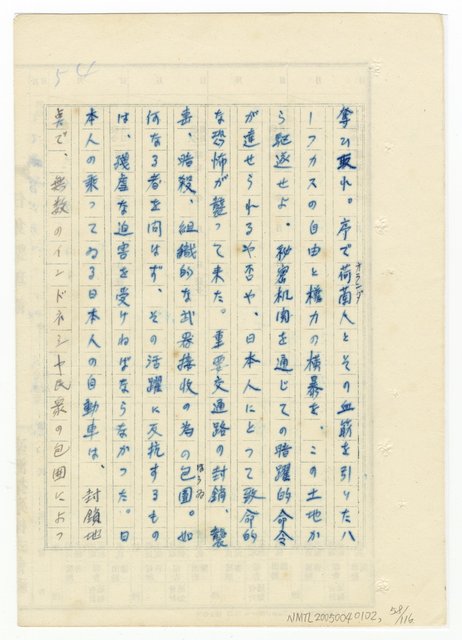 54
奪ひ取れ。序で荷蘭人とその血筋を引いたハ
オランダ
ーフカスの自由と権力の横暴を、この土地か
ら駆逐せよ、秘密机関を通じての暗躍的命令
が達せられるや否や、日本人にとつて致命的
な恐怖が襲つて来た。重要交通路の封鎖、襲
毒、暗殺、組織的な武器接收の為の包囲。如
はうゐ
何なる者を問はず、その活躍に反抗するもの
は、残虐な迫害を受けねばならなかつた。日
本人の乗つてゐる日本人の自動車は、封鎖地
点で、無数のインドネシヤ民衆の包囲によつ
NMTL20050040102,
58/116